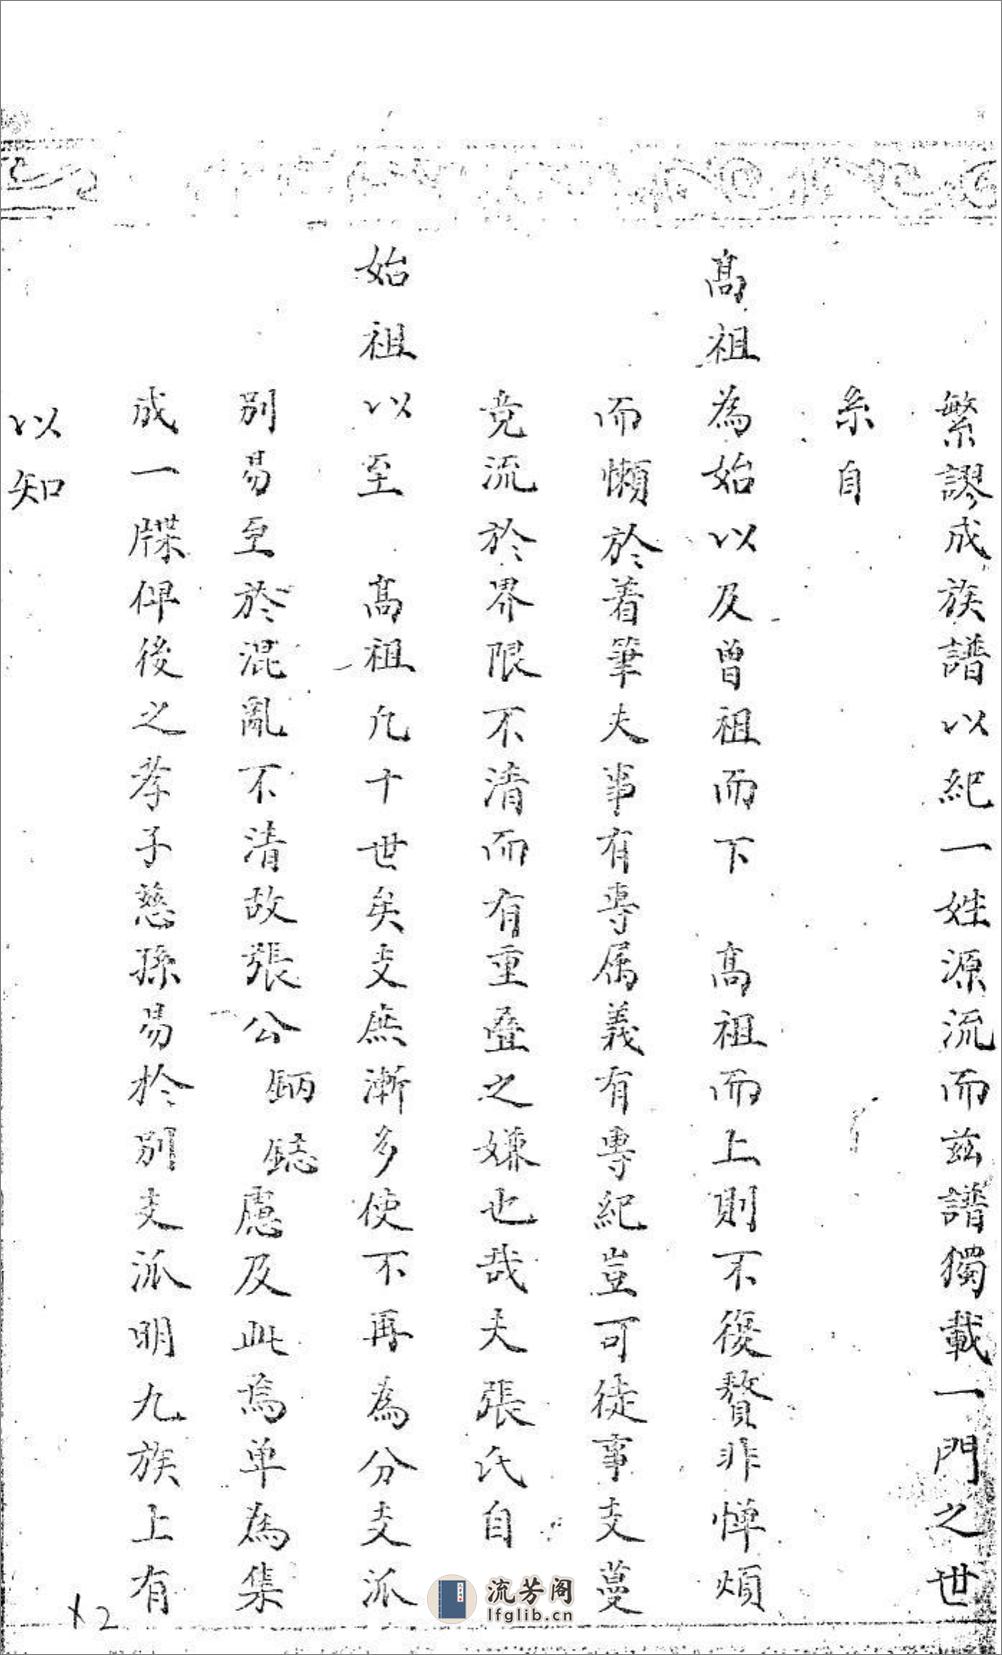 繁謬成族譜以紀一姓源流而茲譜獨載一門之世
系自
高祖為始以及曾祖而下 高祖而上則不復贅非憚煩
而懶於着筆夫事有專属義有專紀豈可徒事支蔓
竞流於界限不清而有重叠之嫌也哉夫張氏自
始祖以至 高祖凢十世矣支庶漸多使不再為分支派
别易至於混亂不清故張公 鋕慮及此焉单為集
成一牒俾後之孝子慈孫易於别支派明九族上有
以知
12
流芳阁
lfglib.cn